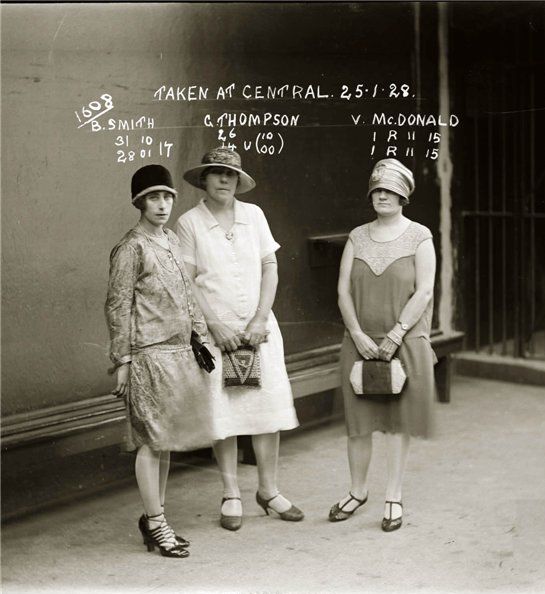 TAKEN AT CENTRAL. 25·1·28.
1608
B. SMITH G. THOMPSON V. McDONALD
31 10 26 (10 1 R 11 15
28 01 17 14 U (00) 1 R 11 15